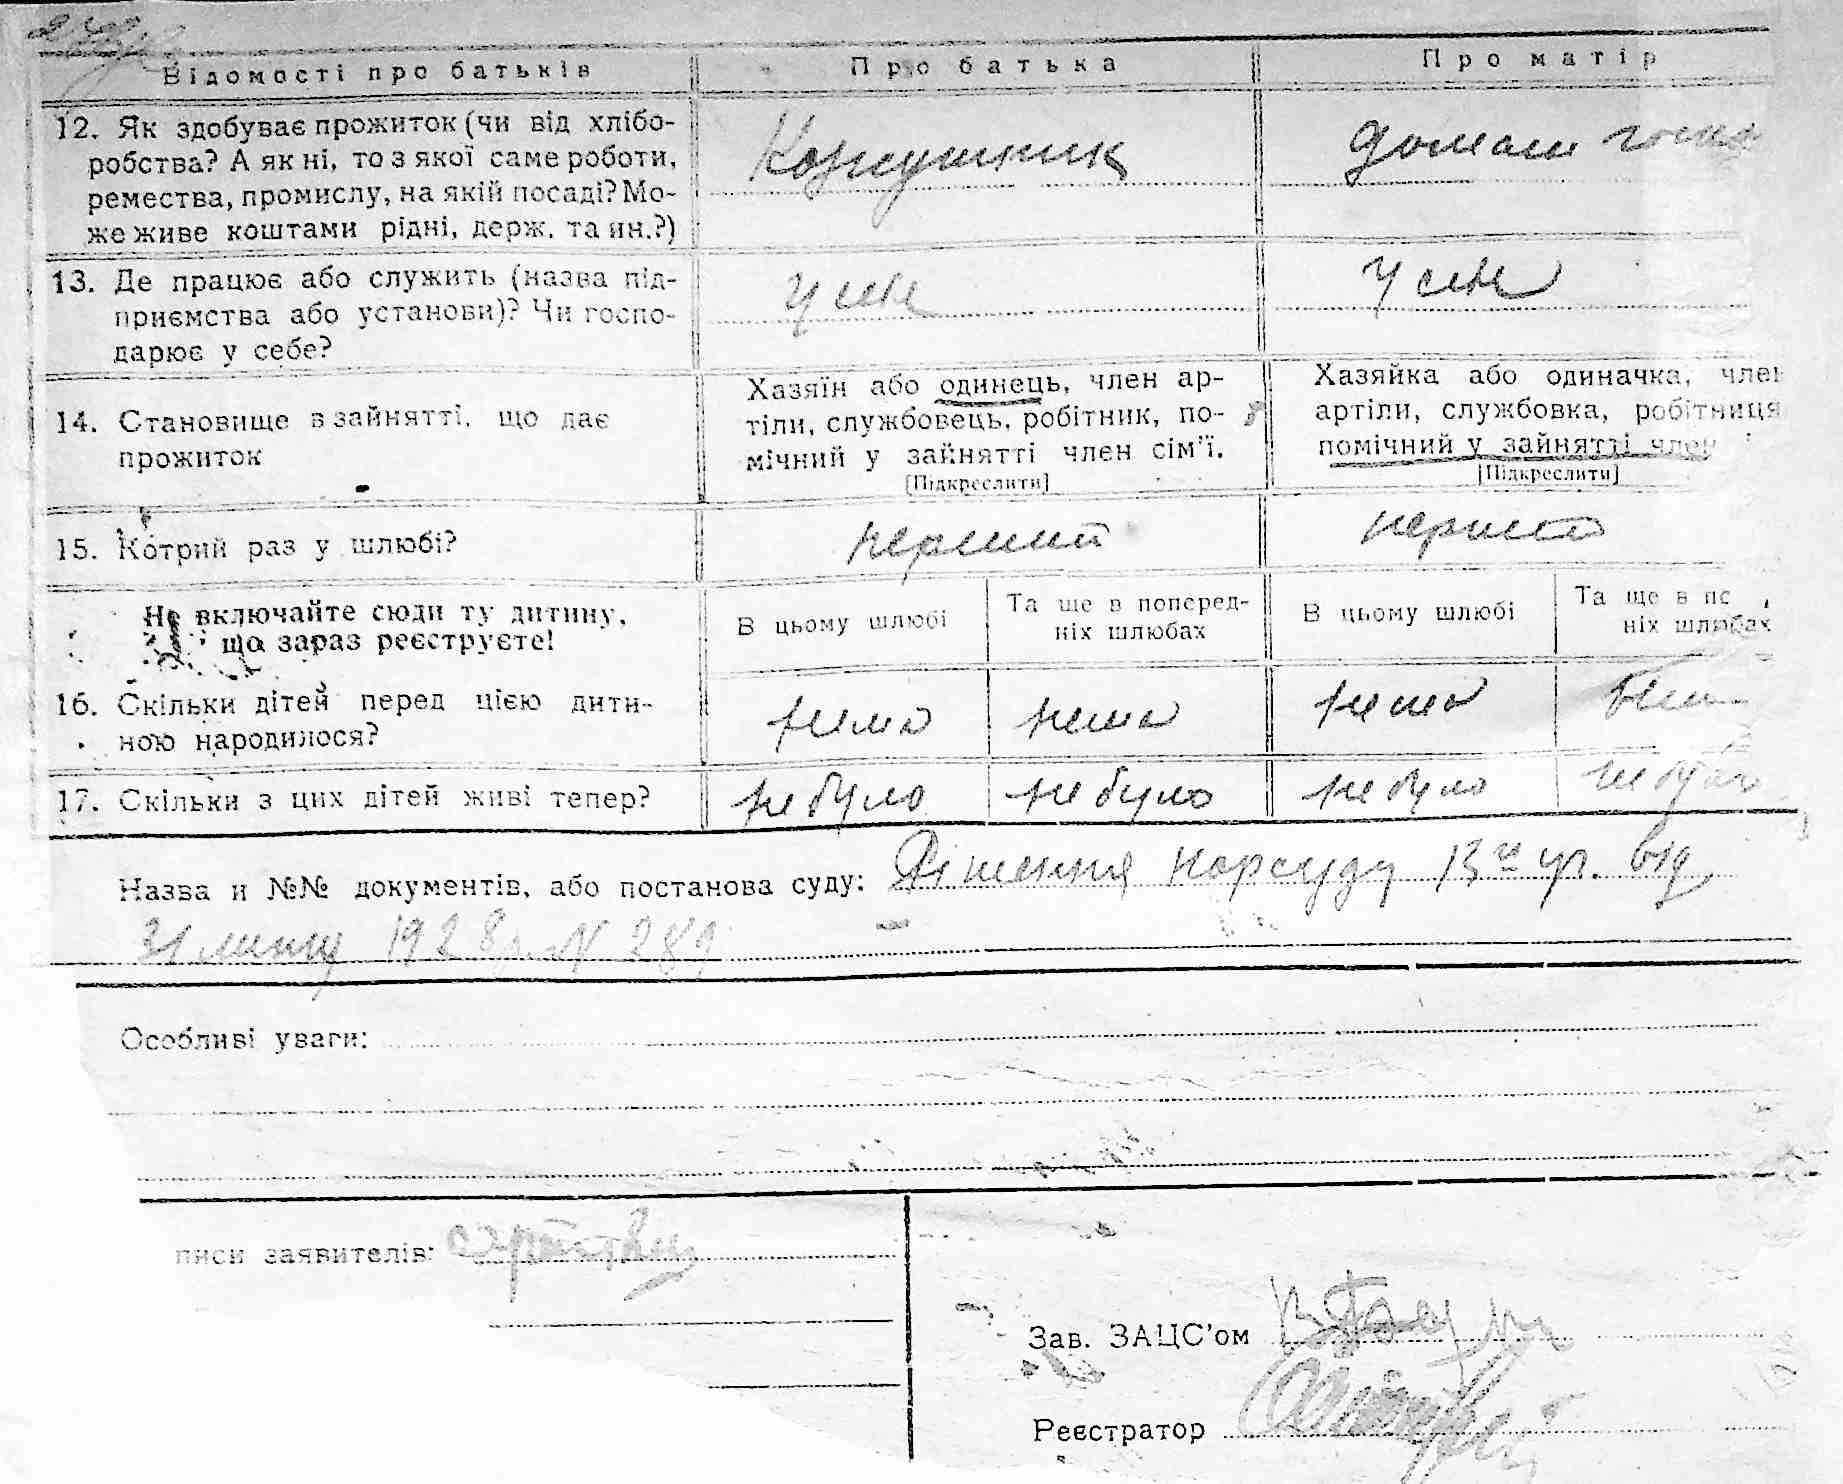 Відомості про батьків
Про батька
Про матір
12. Як здобуває прожиток (чи від хлібо-
робства? А як ні, то з якої саме роботи,
ремества, промислу, на якій посаді? Мо-
же живе коштами рідні, держ. та ин.?)
Кожушник
домаш
13. Де працює або служить (назва під-
приємства або установи)? Чи госпо-
дарює у себе?
у себе
у себе
14. Становище в зайнятті, що дає
прожиток
Хазяїн або одинець, член ар-
тіли, службовець, робітник, по-
мічний у зайнятті член сім'ї.
[Підкреслити]
Хазяйка або одиначка, член
артіли, службовка, робітниця
помічний у зайнятті член
[Підкреслити]
15. Котрий раз у шлюбі?
перший
перший
Не включайте сюди ту дитину,
що зараз реєструєте!
В цьому шлюбі
Та ще в поперед-
ніх шлюбах
В цьому шлюбі
Та ще в по
ніх шлюбах
16. Скільки дітей перед цією дити-
ною народилося?
нема
нема
нема
17. Скільки з цих дітей живі тепер?
не було
не було
не було
не було
Назва и №№ документів, або постанова суду: Рішення нарсуду 13 від
31 липня 1928 р. N 289
Особливі уваги:
писи заявителів:
Зав. ЗАЦС'ом
Реєстратор